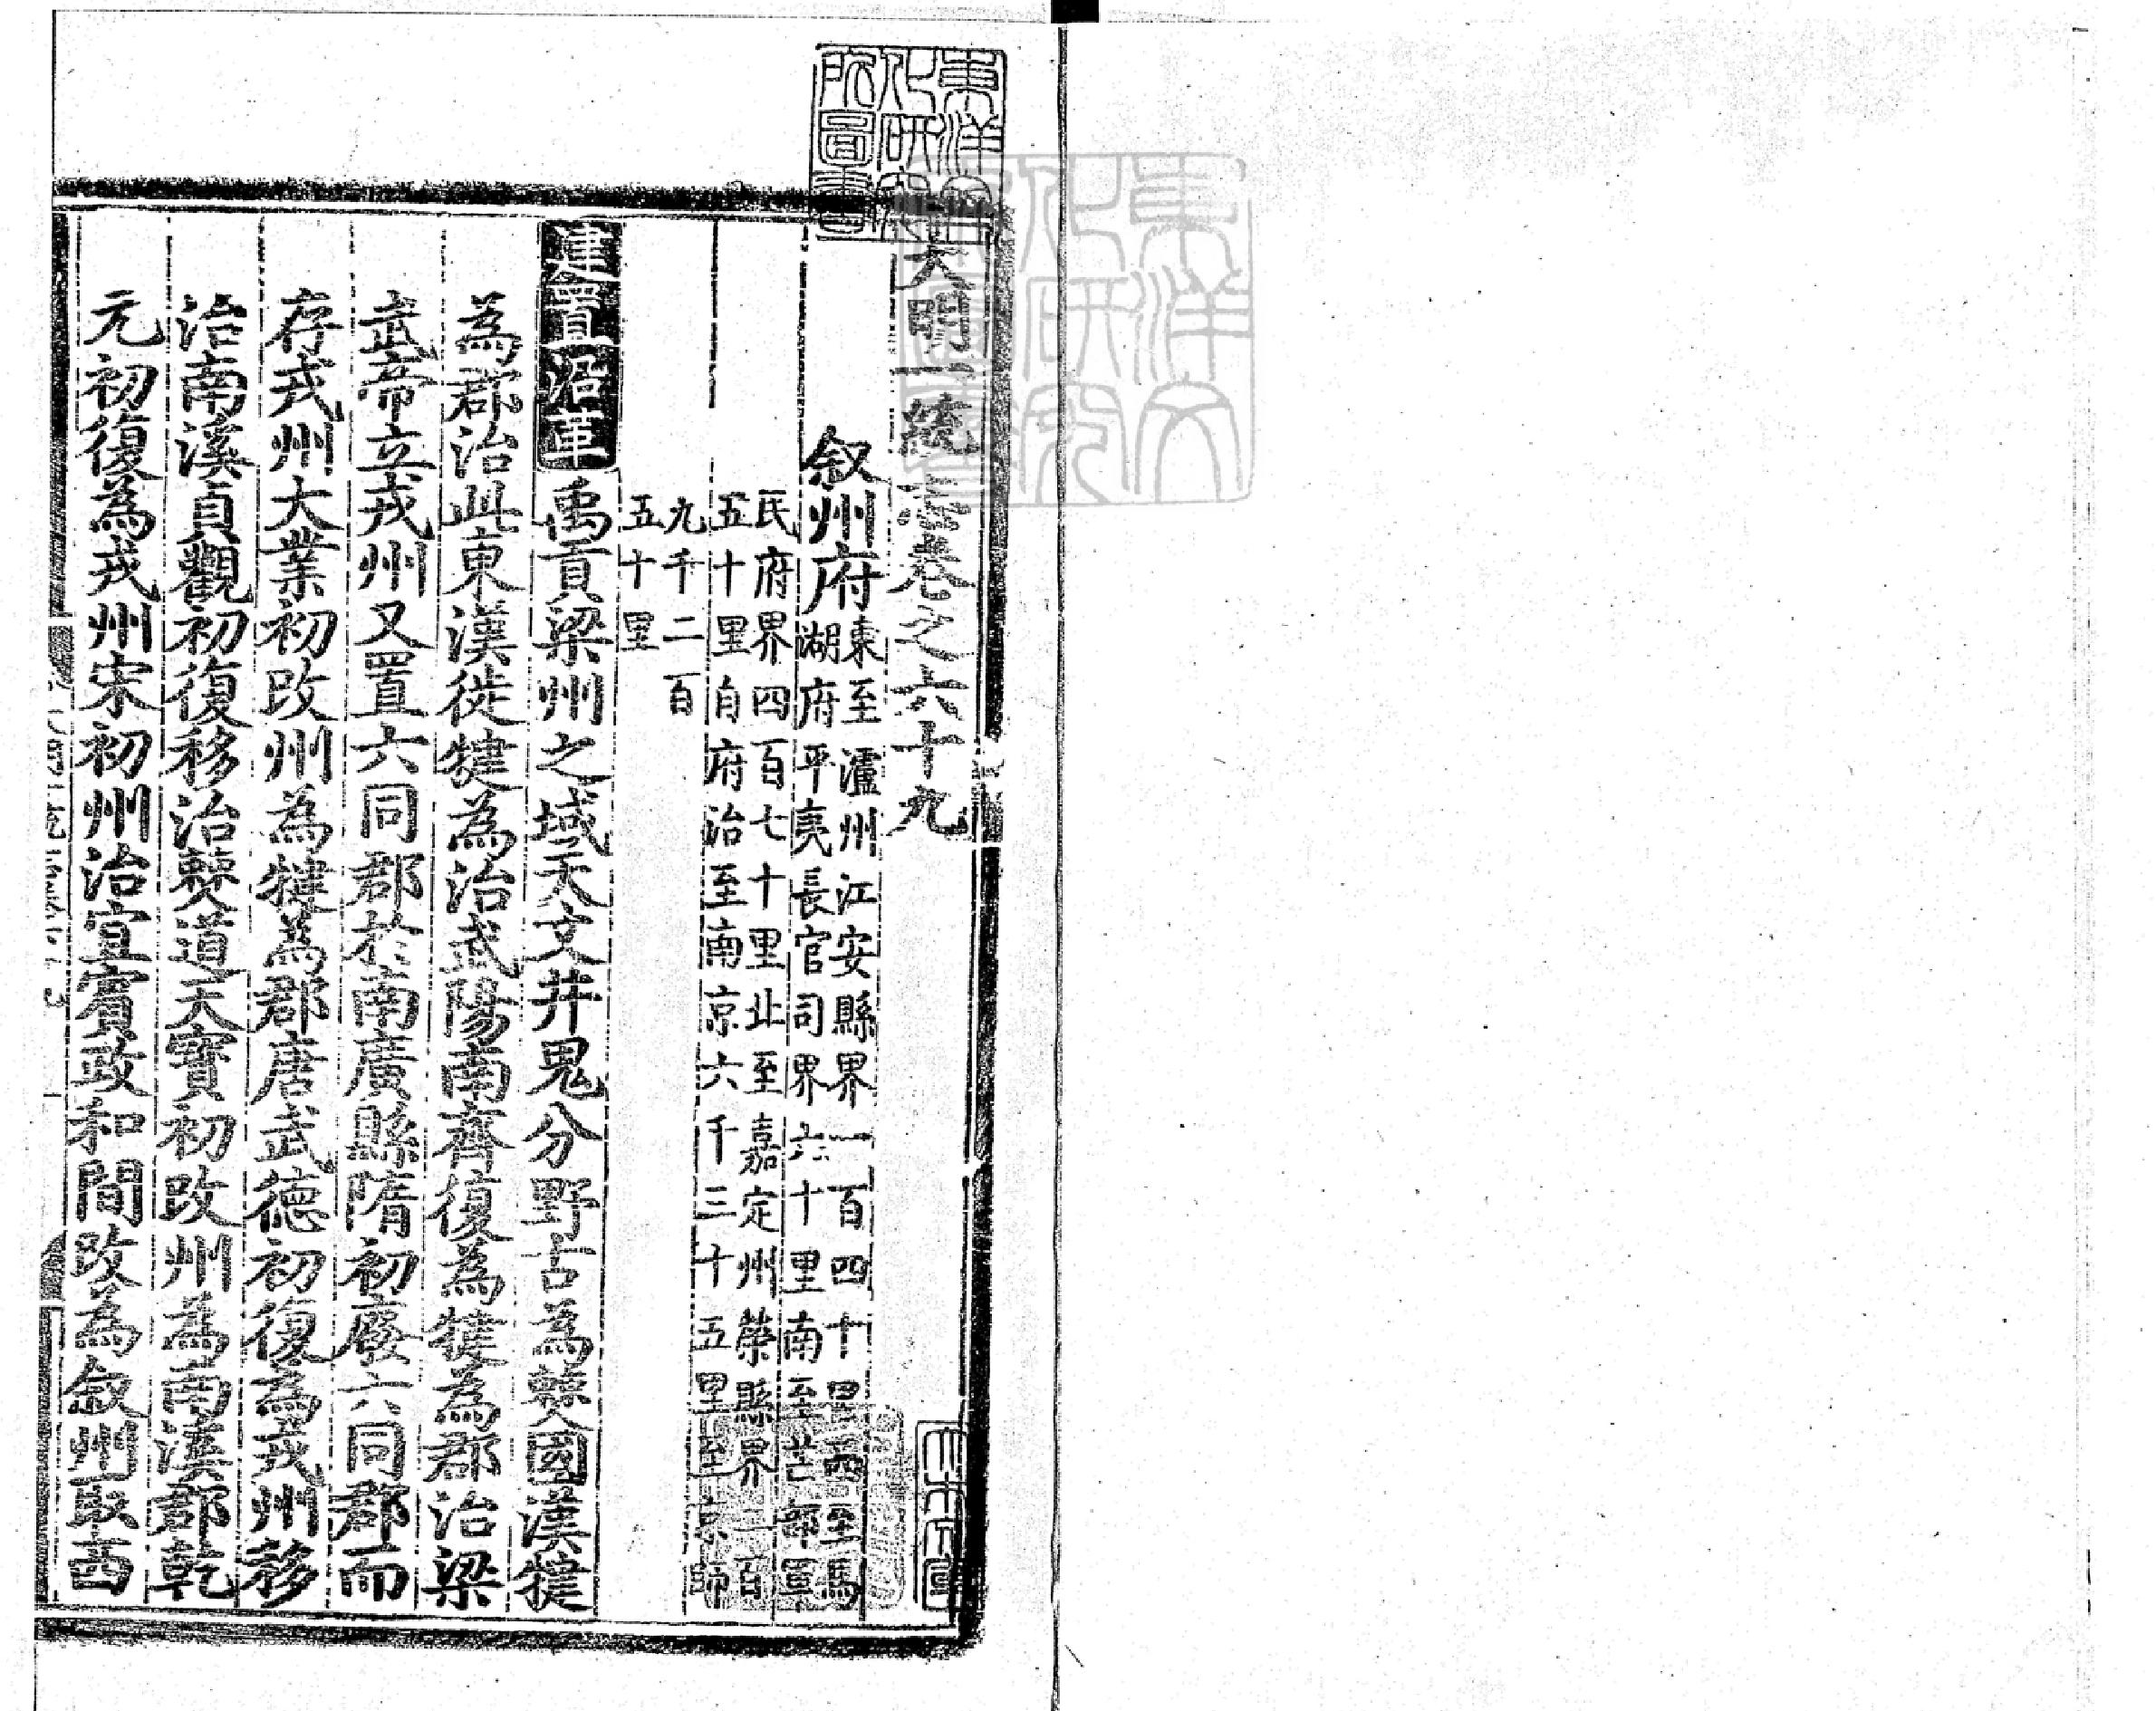 大明一統志卷之六十九
叙州府
東至瀘州江安縣界一百四十里西至馬
湖府平夷長官司界六十里南至芒部軍
民府界四百七十里北至嘉定州榮縣界二百
五十里自府治至南京六千三十五里至京師
九千二百
五十里
建置沿革 禹貢梁州之域天文井鬼分野古為僰國漢犍
為郡治此東漢徙犍為治武陽南齊復為犍為郡治梁
武帝立戎州又置六同郡於南廣縣隋初廢六同郡而
存戎州大業初改州為犍為郡唐武德初復為戎州移
治南溪貞觀初復移治僰道天寶初改州為南溪郡乾
元初復為戎州宋初州治宜賓政和間改為敘州取西
東洋文化研究所圖書
東洋文化研究所圖書
大木文庫